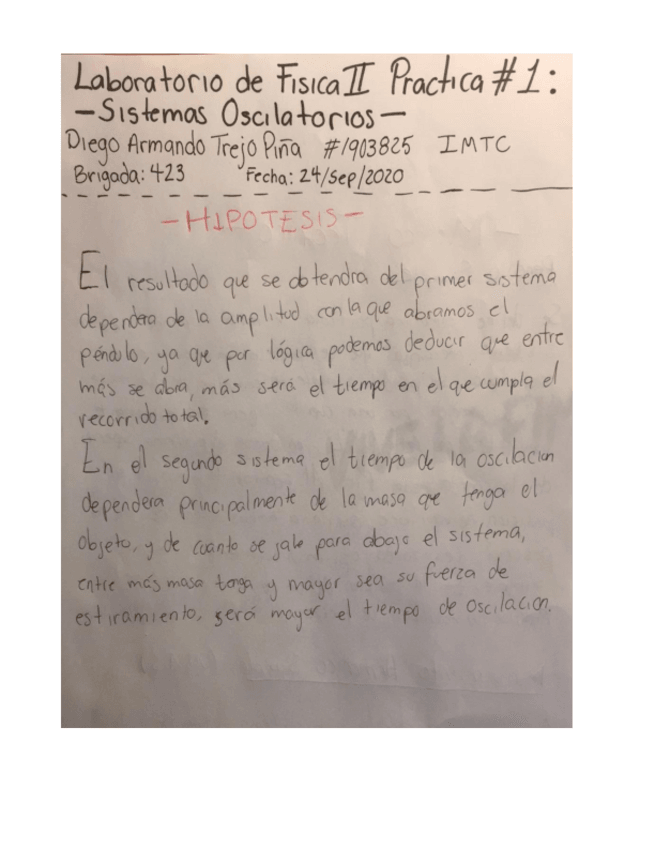 Laboratorio de Fisica II Practica #1:
- Sistemas Oscilatorios -
Diego Armando Trejo Piña #1903825 IMTC
Brigada: 423 Fecha: 24/Sep/2020
- HIPOTESIS -
El resultado que se obtendra del primer sistema
dependera de la amplitud con la que abramos el
péndulo, ya que por lógica podemos deducir que entre
más se abra, más será el tiempo en el que cumpla el
recorrido total.
En el segundo sistema el tiempo de la oscilacion
dependera principalmente de la masa que tenga el
objeto, y de cuanto se jale para abajo el sistema,
entre más masa tenga y mayor sea su fuerza de
estiramiento, será mayor el tiempo de oscilacion.